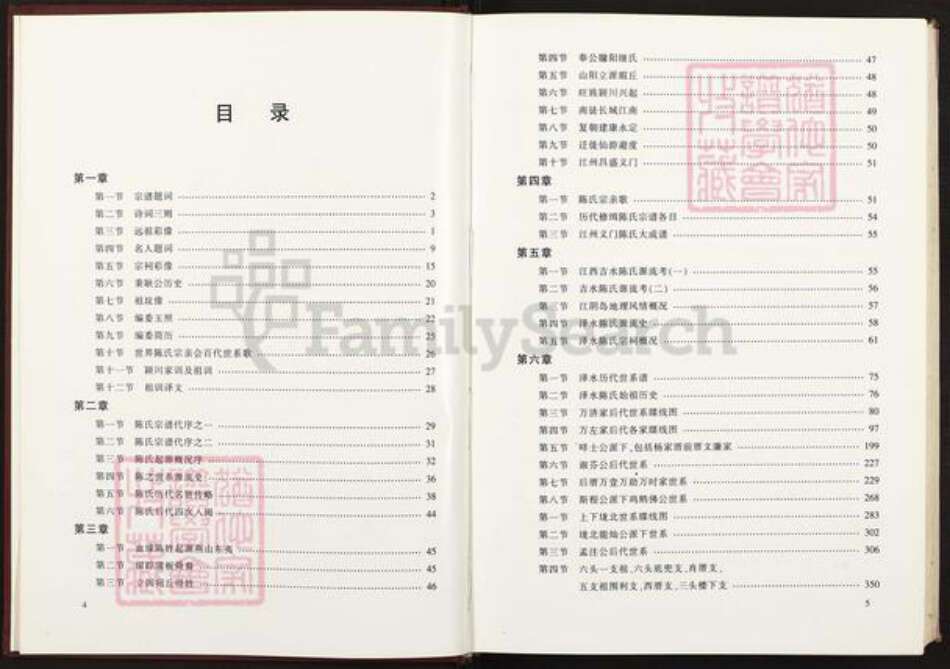 目 录
第一章
第一节 宗谱题词 2
第二节 诗词三则 3
第三节 远祖彩像 1
第四节 名人题词 9
第五节 宗祠彩像 15
第六节 秉耿公历史 20
第七节 祖坟像 21
第八节 编委玉照 22
第九节 编委简历 25
第十节 世界陈氏宗亲会百代世系歌 26
第十一节 颍川家训及祖训 27
第十二节 祖训译文 28
第二章
第一节 陈氏宗谱代序之一 29
第二节 陈氏宗谱代序之二 31
第三节 陈氏起源概况序 32
第四节 陈之世系源流史 36
第五节 陈氏历代名贤传略 38
第六节 陈氏后代四次入闽 44
第三章
第一节 血缘陈姓起源 山东夷 45
第二节 45
第三节 46
4
第四节 奉公 阳继氏 47
第五节 山阳立派瑕丘 48
第六节 旺族颍川兴起 48
第七节 南徒长城江南 49
第八节 复朝建康永定 50
第九节 迁徙仙游避度 50
第十节 江州昌盛义门 51
第四章
第一节 陈氏宗亲歌 51
第二节 历代修缉陈氏宗谱各目 54
第三节 江州义门陈氏大成谱 55
第五章
第一节 江西吉水陈氏源流考(一) 55
第二节 吉水陈氏源流考(二) 56
第三节 江阴岛地理风情概况 57
第四节 泽水陈氏源流史 58
第五节 泽水陈氏宗祠概况 61
第六章
第一节 泽水历代世系谱 75
第二节 泽水陈氏始祖历史 76
第三节 万济家后代世系牒线图 80
第四节 万左家后代各家牒线图 97
第五节 嘚士公派下,包括杨家厝前厝文廉家 199
第六节 淑芬公后代世系 227
第七节 后厝万壹万助万时家世系 229
第八节 斯程公派下鸣鹅佛公世系 268
第一节 上下垅北世系牒线图 283
第二节 垅北能灿公派下世系 302
第三节 孟注公后代世系 306
第四节 六头一支祖,六头底兜支,肖厝支,
五支祖围利支,西厝支,三头楼下支 350
5
FamilySearch